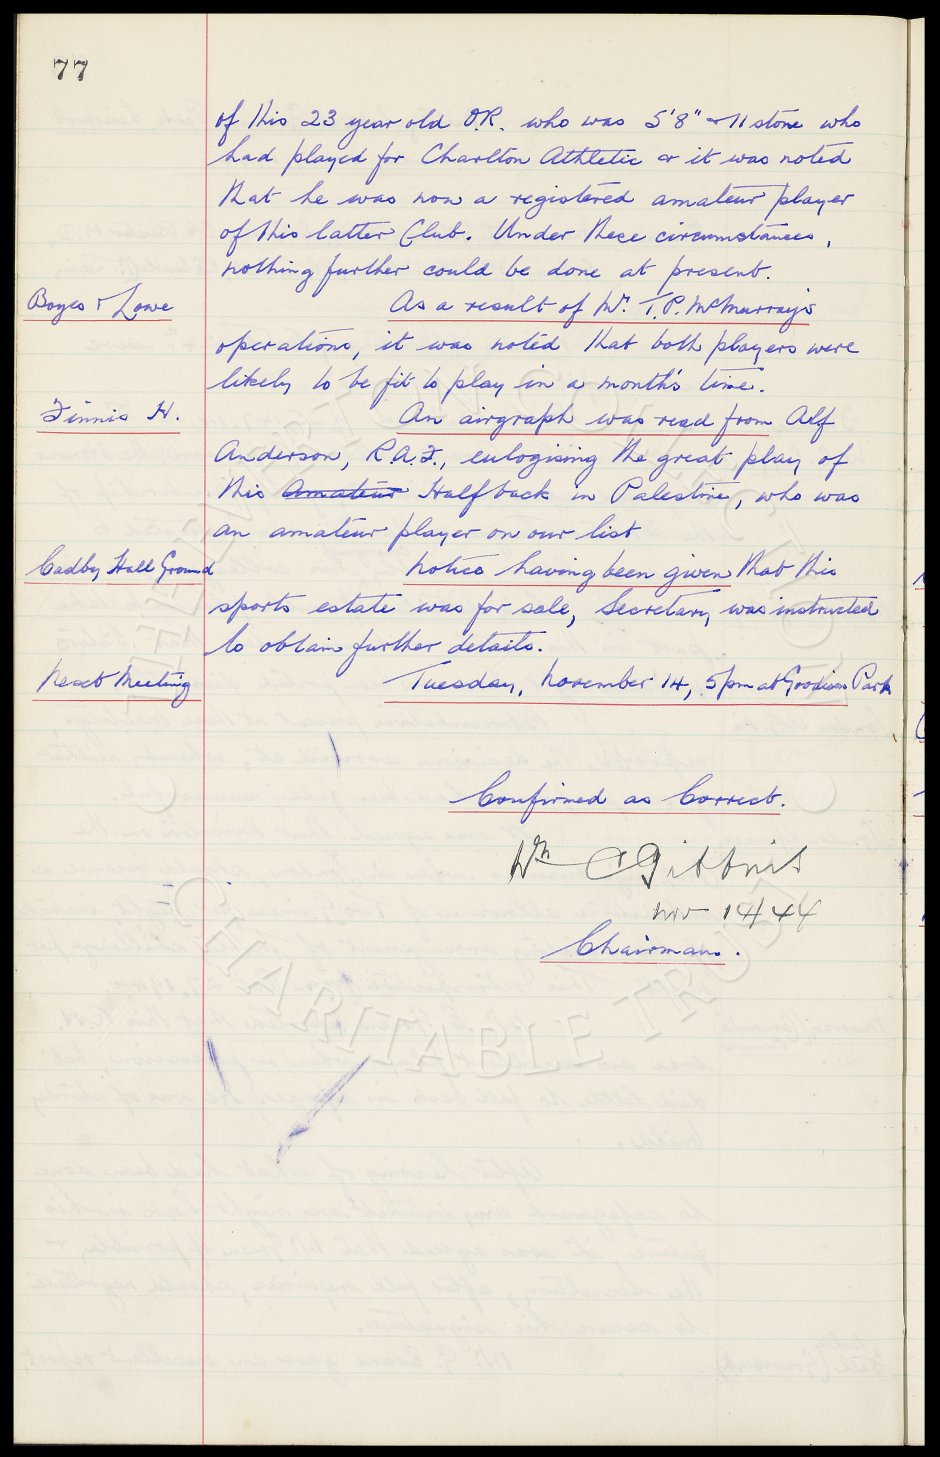 77
of this 23 year old O.R. who was 5'8" & 11 stone who
had played for Charlton Athletic & it was noted
that he was now a registered amateur player
of this latter Club. Under these circumstances,
nothing further could be done at present.
Boyes & Lowe As a result of Mr. T.P. McMurray's
operations, it was noted that both players were
likely to be fit to play in a month's time.
Finnis H. An airgraph was read from Alf
Anderson, R.A.F., eulogising the great play of
this Amateur Halfback in Palestine, who was
an amateur player on our list
Cadby Hall Ground Notice having been given that this
sports estate was for sale, Secretary was instructed
to obtain further details.
Next Meeting Tuesday, November 14, 5pm at Goodison Park
Confirmed as Correct.
Wm C Gibbins
Nov 14/44
Chairman.
CHARITABLE TRUST